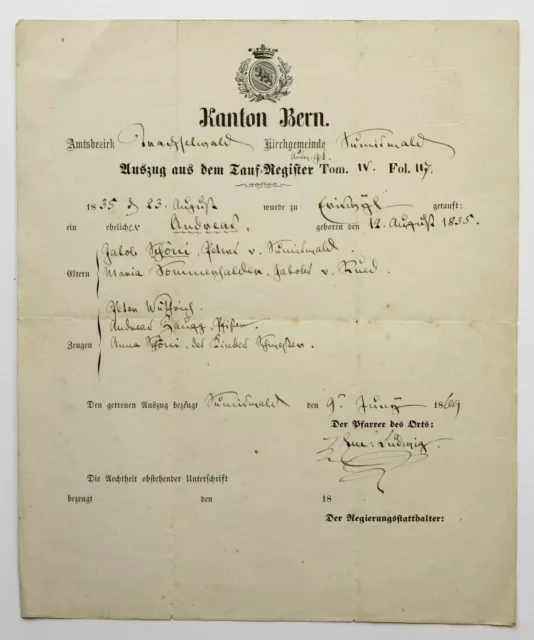 Kanton Bern.
Amtsbezirk Trachselwald Kirchgemeinde Sumiswald
Auszug aus dem Tauf-Register Tom. IV. Fol. 117.
1835 d 23. August wurde zu getauft:
ein ehelicher Andreas geboren den 12. August 1835.
Jakob Schöni, Peters v. Sumiswald.
Eltern Maria Sommerhalder, Jakobs v. Rued.
Peter Wüthrich
Andreas Zaugg,
Zeugen Anna Schöni, des Kindes Schwester.
Den getreuen Auszug bezeugt Sumiswald den 9. Juny 1869
Der Pfarrer des Orts:
Ludwig.
Die Aechtheit obstehender Unterschrift
bezeugt den 18
Der Regierungsstatthalter: